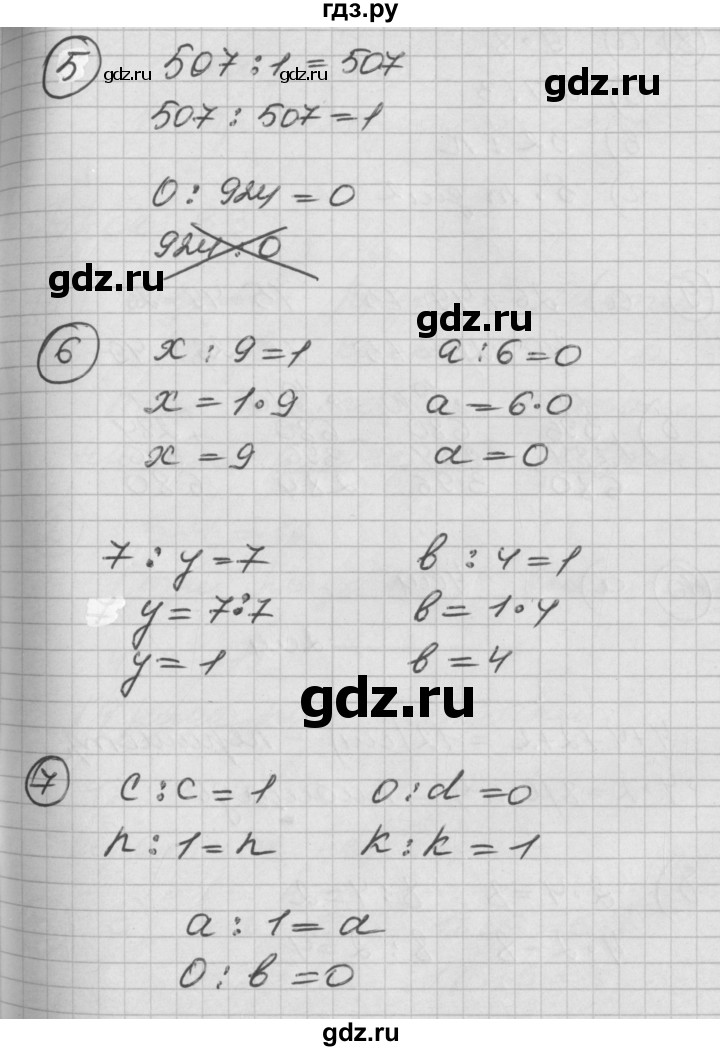 гдз.ру
5 507 : 1 = 507
gdz.ru gdz.ru gdz.ru
507 : 507 = 1
0 : 924 = 0
924 : 0
gdz.ru
gdz.ru
6 x : 9 = 1 a : 6 = 0
x = 1 · 9 a = 6 · 0
x = 9 a = 0
7 : y = 7 в : 4 = 1
y = 7 : 7 в = 1 · 4
y = 1 в = 4
gdz.ru
7 c : c = 1 0 : d = 0
n : 1 = n k : k = 1
a : 1 = a
0 : в = 0
gdz.ru